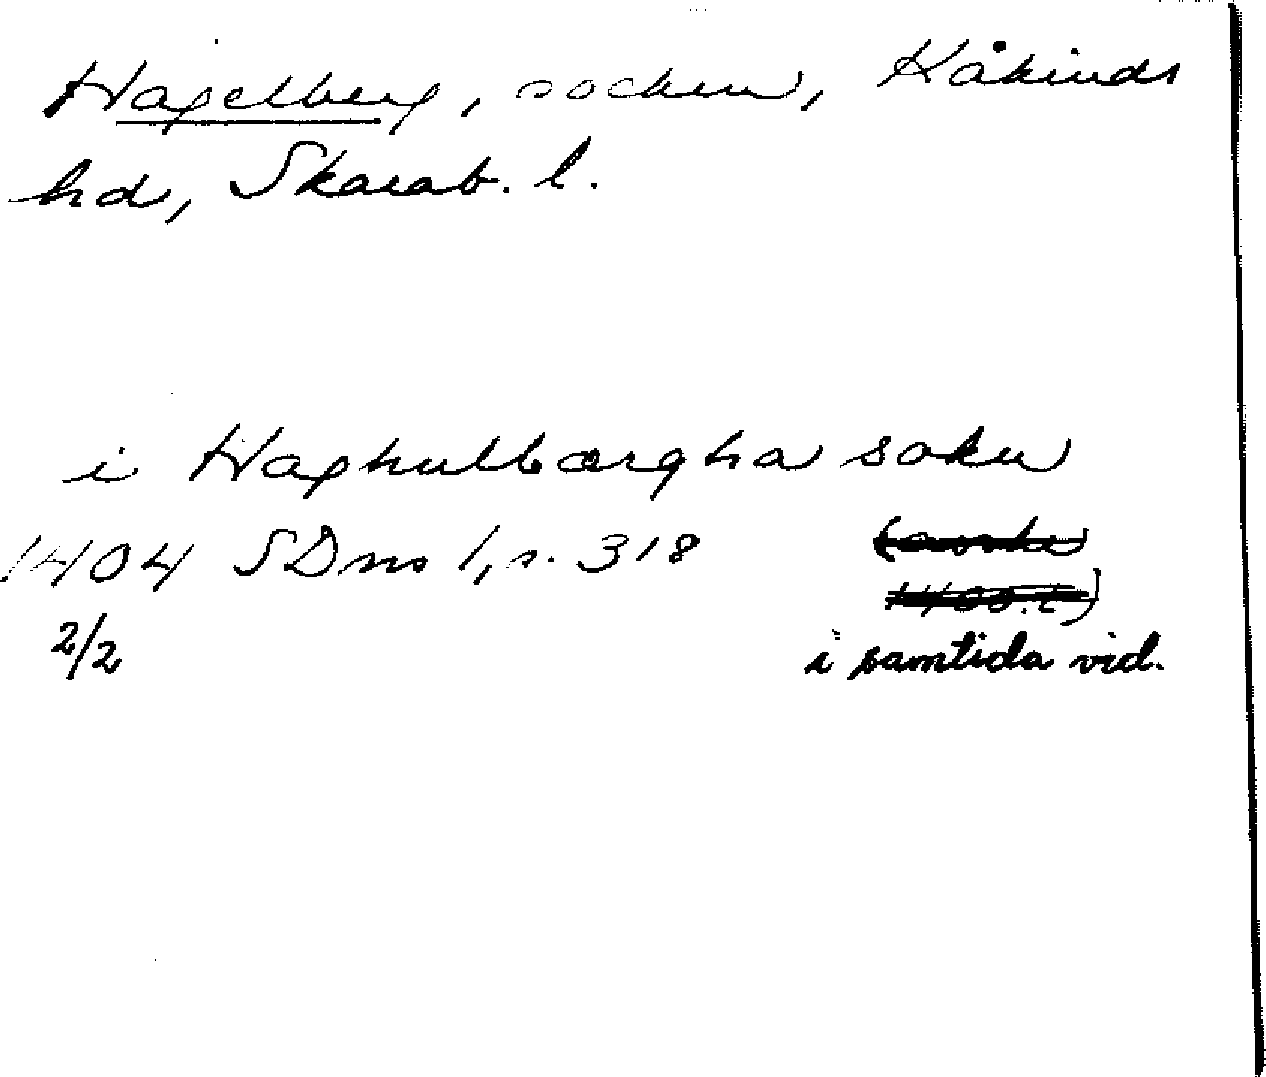 Hagelberg, socken, Kåkinds
hd, Skarab. l.
i Haghulbærgha sokn
1404 SDns 1, s. 318
2/2
i samtida vid.